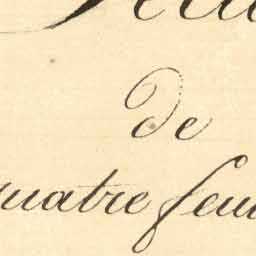 de
quatre feu